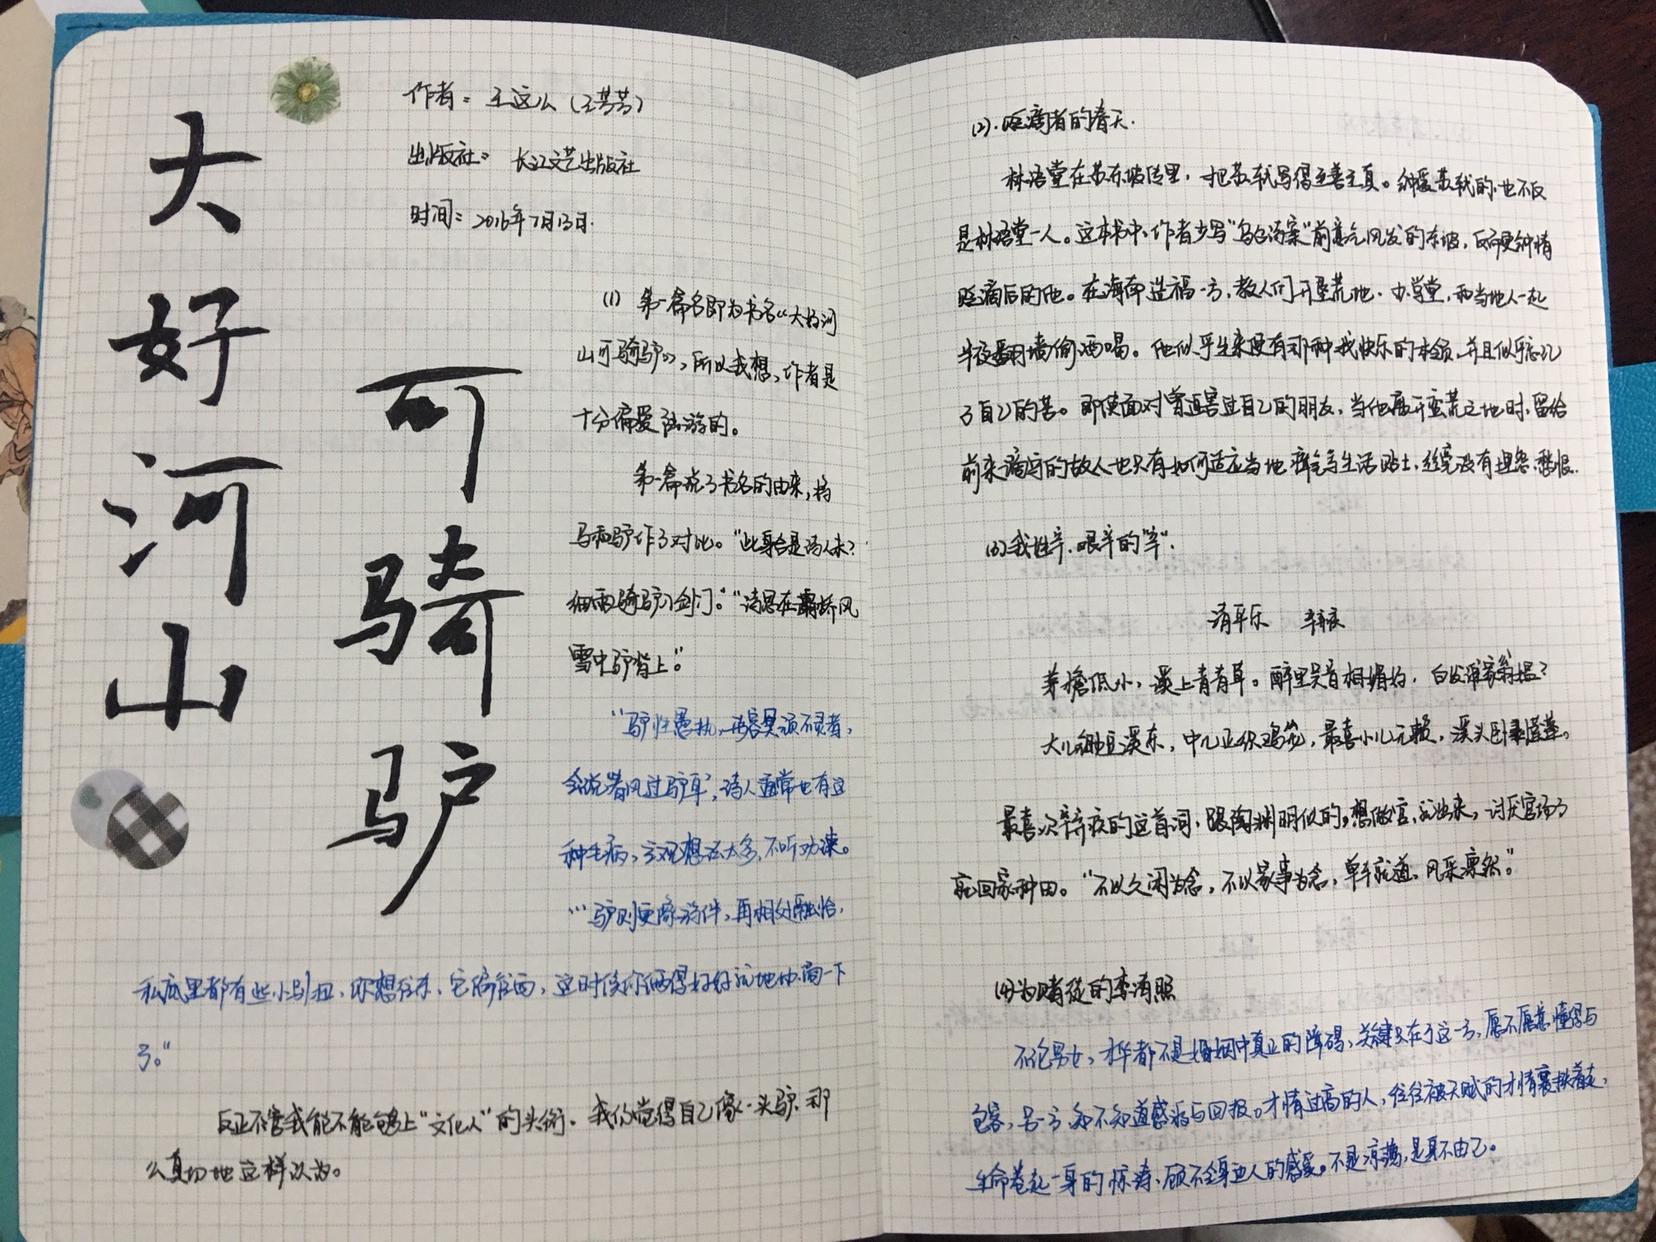 大好河山
可骑驴
作者：王这么（王芳芳）
出版社：长江文艺出版社
时间：2016年7月13日.
(1) 第一篇名即为书名“大好河
山可骑驴”，所以我想，作者是
十分偏爱陆游的。
第一篇说了书名的由来，将
马和驴作了对比。“此身合是诗人未？
细雨骑驴入剑门。”“诗思在灞桥风
雪中驴背上。”
“驴性愚执，形容冥顽不灵者，
会说‘春风过驴耳’，诗人通常也有这
种毛病，主观想法太多，不听劝谏。
…驴则更像游伴，再相处融洽，
私底里都有些小别扭，你想往东，它偏往西，这时候你俩得好好说地协商一下
了。”
反正不管我能不能够上“文化人”的头衔，我仍觉得自己像一头驴，那
么真切地这样认为。
(2).贬谪者的春天.
林语堂在苏东坡传里，把苏轼写得至善至真。钟爱苏轼的也不仅
是林语堂一人。这本书中，作者少写“乌台诗案”前意气风发的东坡，反而更钟情
贬谪后的他。在海南造福一方，教人们开垦荒地，办学堂，和当地人一起
半夜翻墙偷酒喝。他似乎生来便有那种找快乐的本领，并且似乎忘记
了自己的苦。即使面对曾迫害过自己的朋友，当他离开蛮荒之地时，留给
前来谪守的故人也只有如何适应当地瘴气与生活贴士，丝毫没有埋怨、愁恨.
(3)我姓辛，艰辛的“辛”.
清平乐 辛弃疾
茅檐低小，溪上青青草。醉里吴音相媚好，白发谁家翁媪？
大儿锄豆溪东，中儿正织鸡笼，最喜小儿无赖，溪头卧剥莲蓬。
最喜欢辛弃疾的这首词，跟陶渊明似的，想做官，就出来，讨厌官场了
就回家种田。“不以久闲为念，不以家事为念，单车就道，风采凛然。”
(4)为赌徒的李清照
不论男女，才华都不是婚姻中真正的障碍，关键只在于这一方，愿不愿意懂得与
包容，另一方，知不知道感激与回报。才情过高的人，往往被天赋的才情裹挟着走，
生命卷起一身的惊涛，顾不全身边人的感受。不是凉薄，是身不由己。